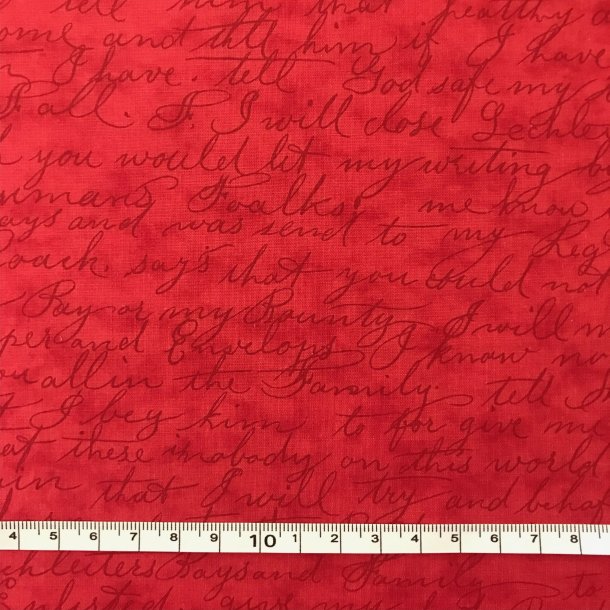 tell him that healthy
ome and tell him if I have
I have. tell God safe my
all. F. I will close
you would let my writing
Foalks me know
ays and was send to my
Coach. says that you could not
Pay or my Bounty I will
per and Envelops I know
ou all in the Family. tell
I beg him to for give me
at these in abody on this world
in that I will try and beha
4 5 6 7 8 9 10 1 2 3 4 5 6 7 8
chleiters Bays and Family to